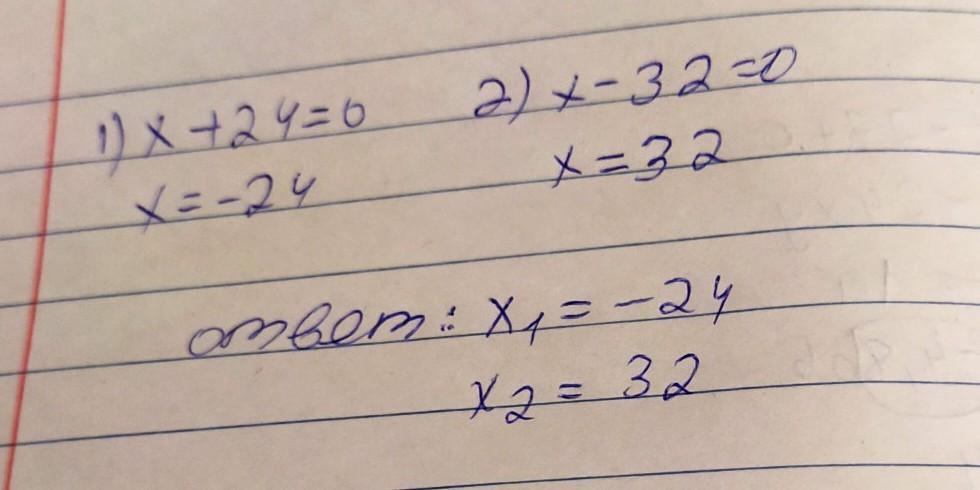 1) x+24=0 2) x-32=0
x=-24 x=32
ответ: x₁ = -24
x₂ = 32